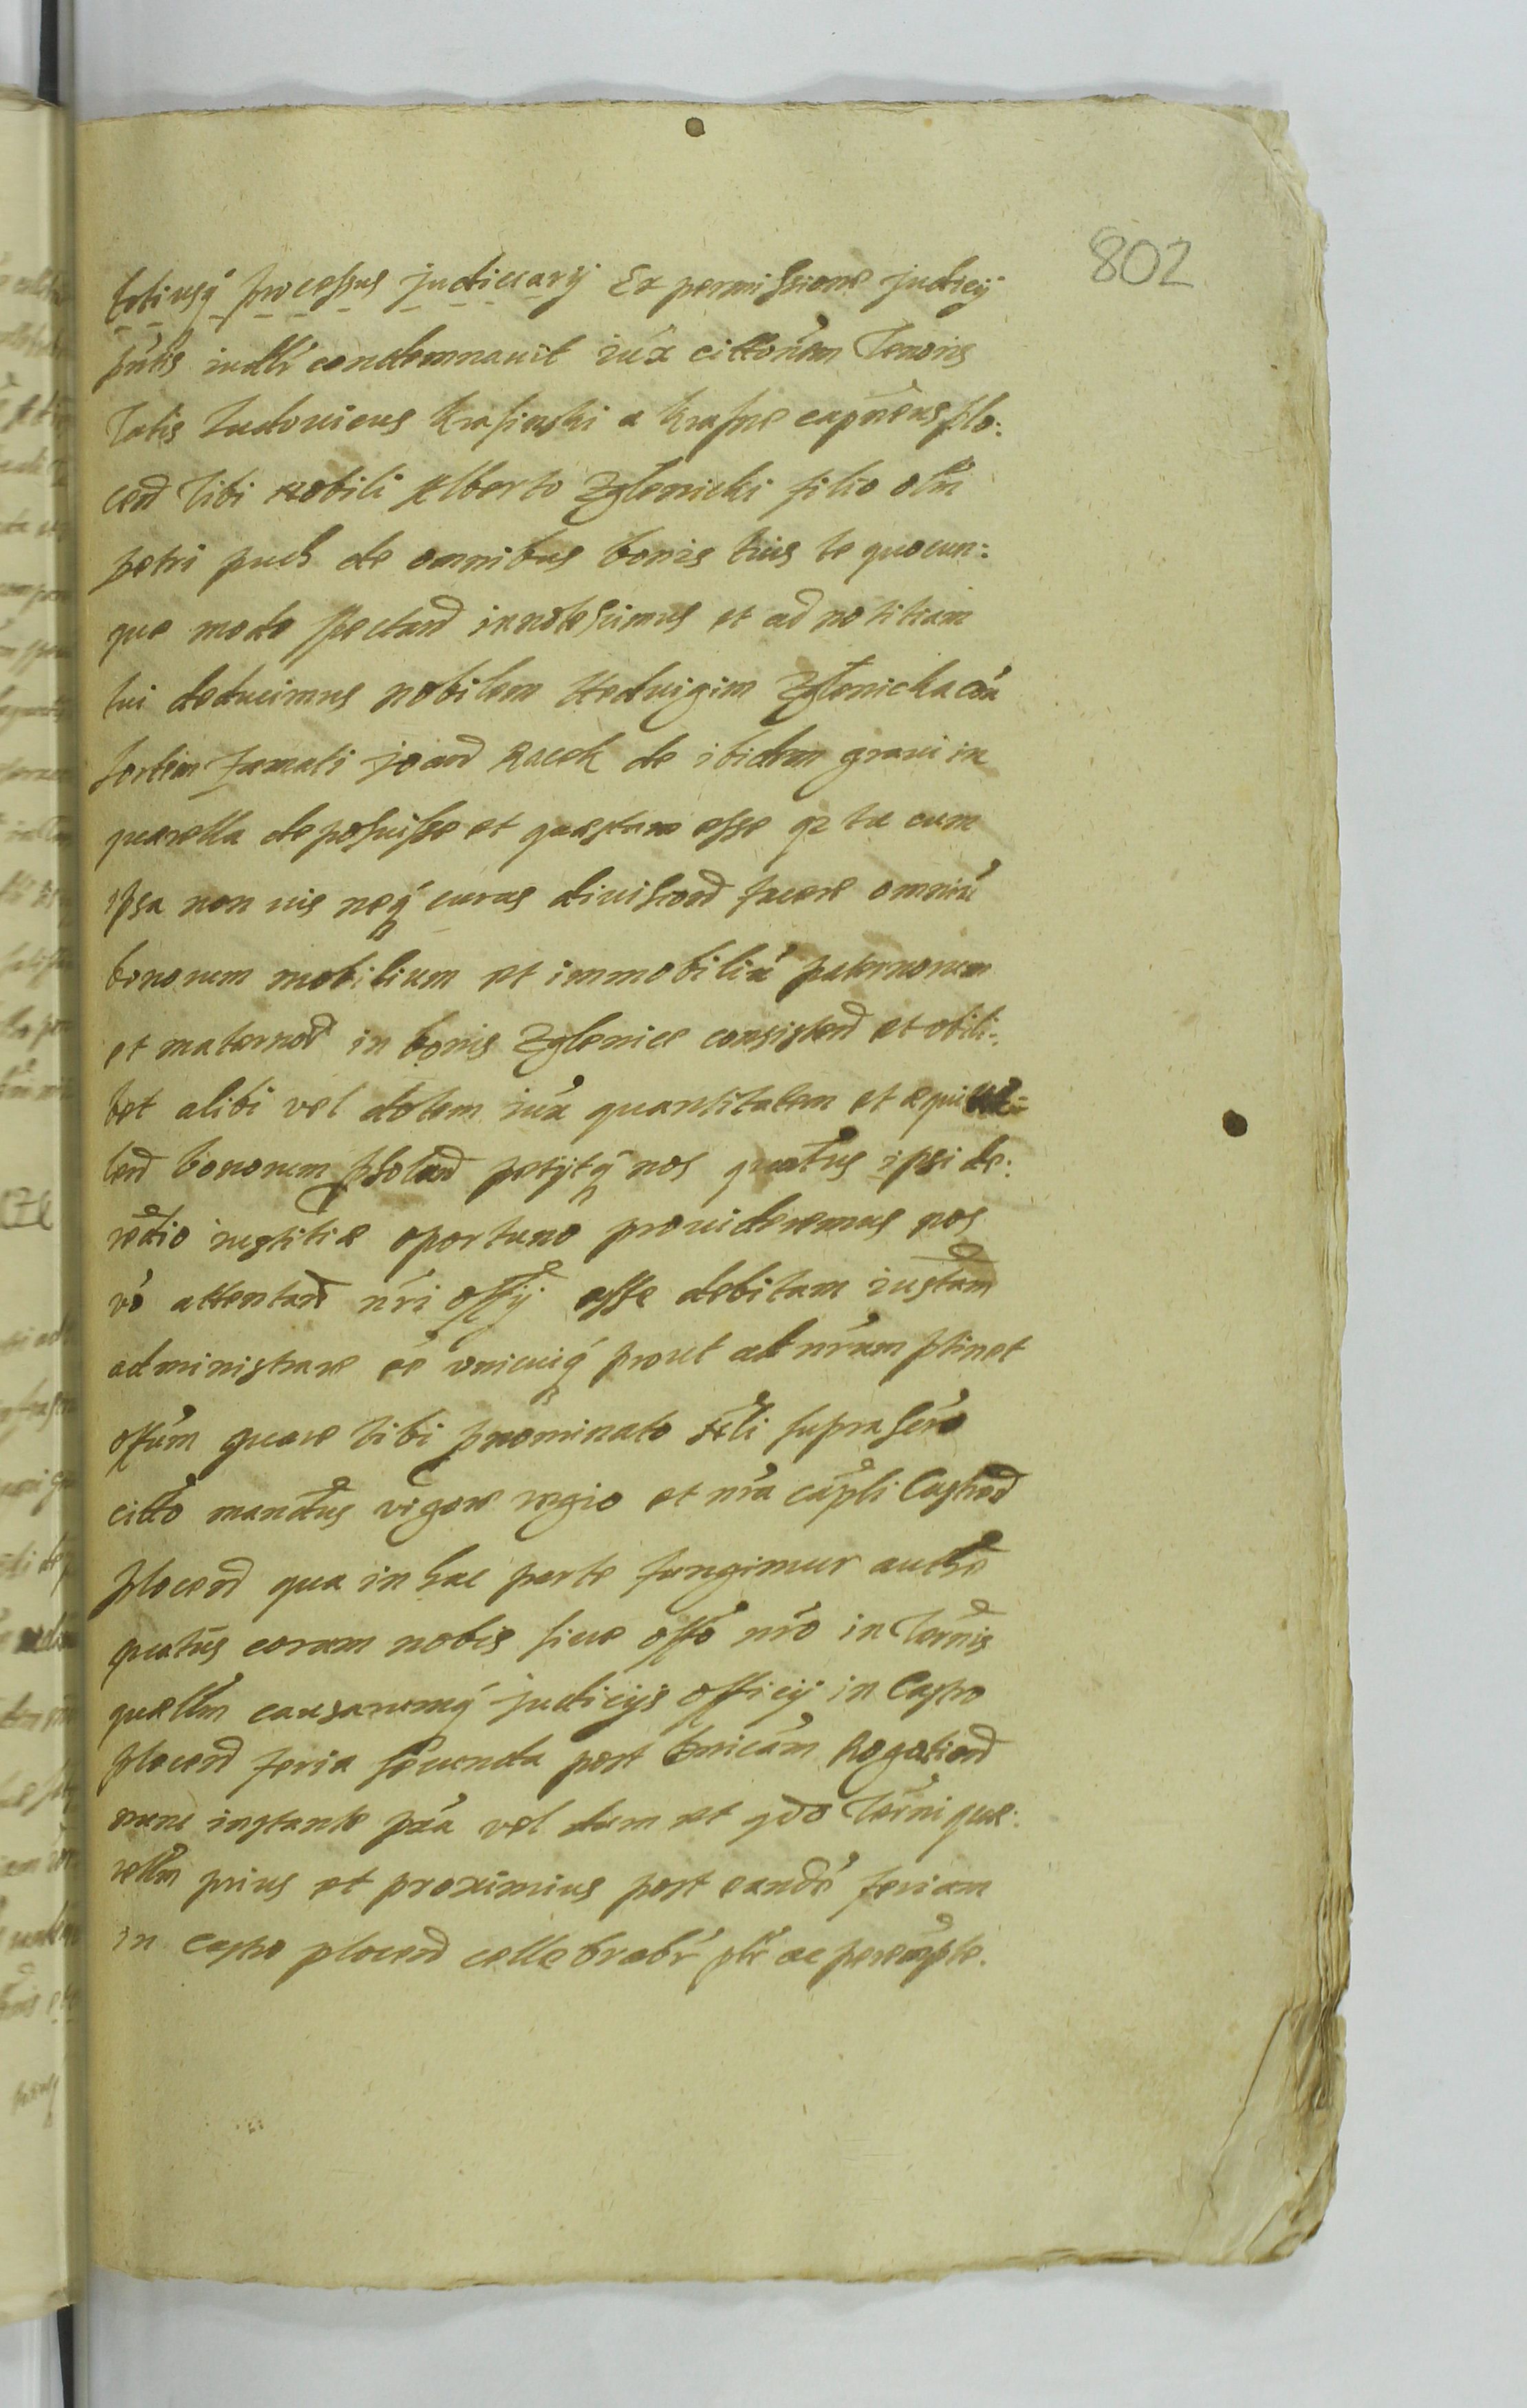 802
totiusq processus judiciarij Ex permissione judicij
pntis iudlr condemnauit iux cittonem Tenoris
Talis Ludouicus Krasinski a Krasne capneus plo:
cen Tibi Nobili Alberto Zglenicki filio olim
petri puch de omnibus bonis tuis te quocun:
que modo spectan innotescimus et ad notitiam
tui deducimus nobilem Heduigim Zglenicka con
sortem famati joan Racek de ibidem graui in
quaerella deposuisse et questam esse qr tu cum
ipsa non vis neq curas diuision facere omniu
bonorum mobilium et immobiliu paternorum
et maternor in bonis Zglenice consisten et vbili:
bet alibi vel dotem iux quantitatem et equiua
len bonorum psolan petijtq nos quatus ipsi de:
redio iustitiae oportuno prouideremus nos
vo attentan nri offij esse debitam iustam
administrare ee vnicuiq prout ad nrum ptinet
offum quare tibi pnominato Alb suprascro
citto mandus vigore regio et nra capli Castren
plocen qua in hac parte fungimur authe
quatus coram nobis siue offo nro in Ternis
quaellm causarumq judicijs officij in Castro
plocen feria secunda post Dnicam Rogation
nunc instante pxa vel dum et qdo Terni quae:
rellm prius et proximius post eande feriam
in Castro plocen cellebrabr plr ac perempte.